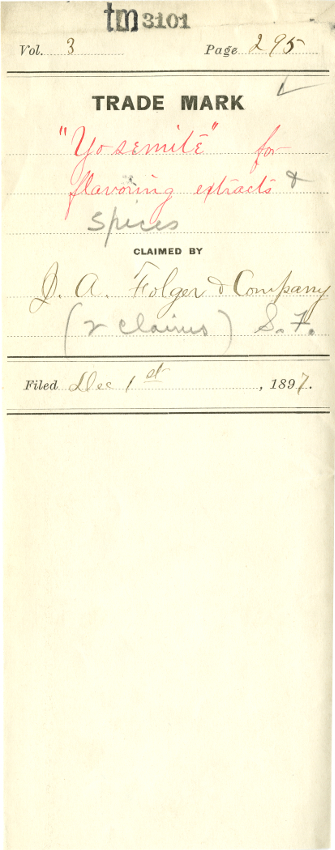 tm 3101
Vol. 3 Page 295
TRADE MARK
"Yosemite" for
flavoring extracts &
Spices
CLAIMED BY
J. A. Folger & Company
(2 claims) S. F.
Filed Dec 1st, 1897.